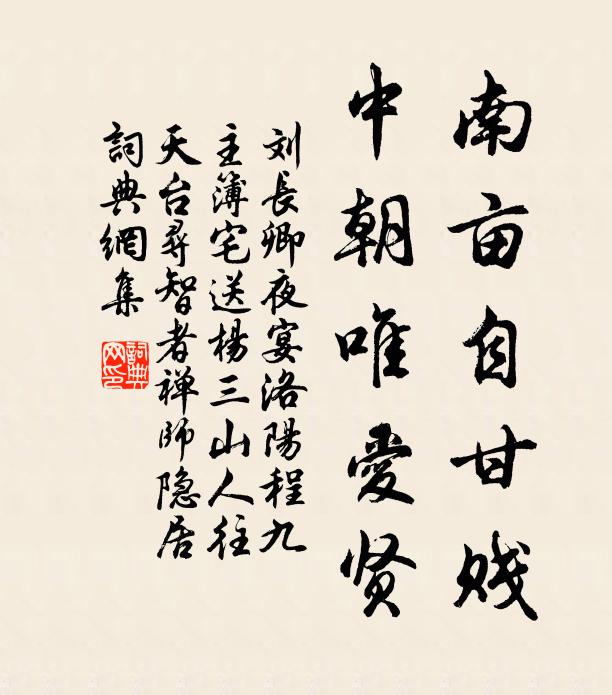 南亩自甘贱
中朝唯愛贤
刘長卿夜宴洛陽程九
主簿宅送楊三山人往
天台尋智者禅師隐居
詞典網集
詞典
网印